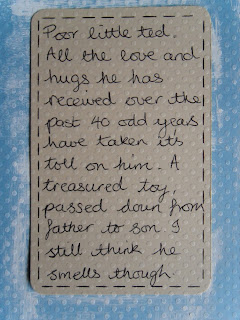 Poor little ted.
All the love and
hugs he has
received over the
past 40 odd yeas
have taken it's
toll on him. A
treasured toy,
passed down from
father to son I
still think he
smells though.